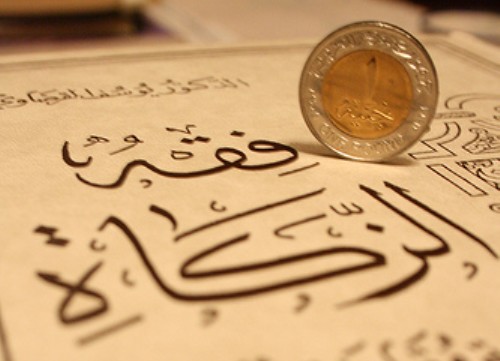 الدكتور يوسف القرضاوي
فِقْهُ
الزَّكَاةِ
١